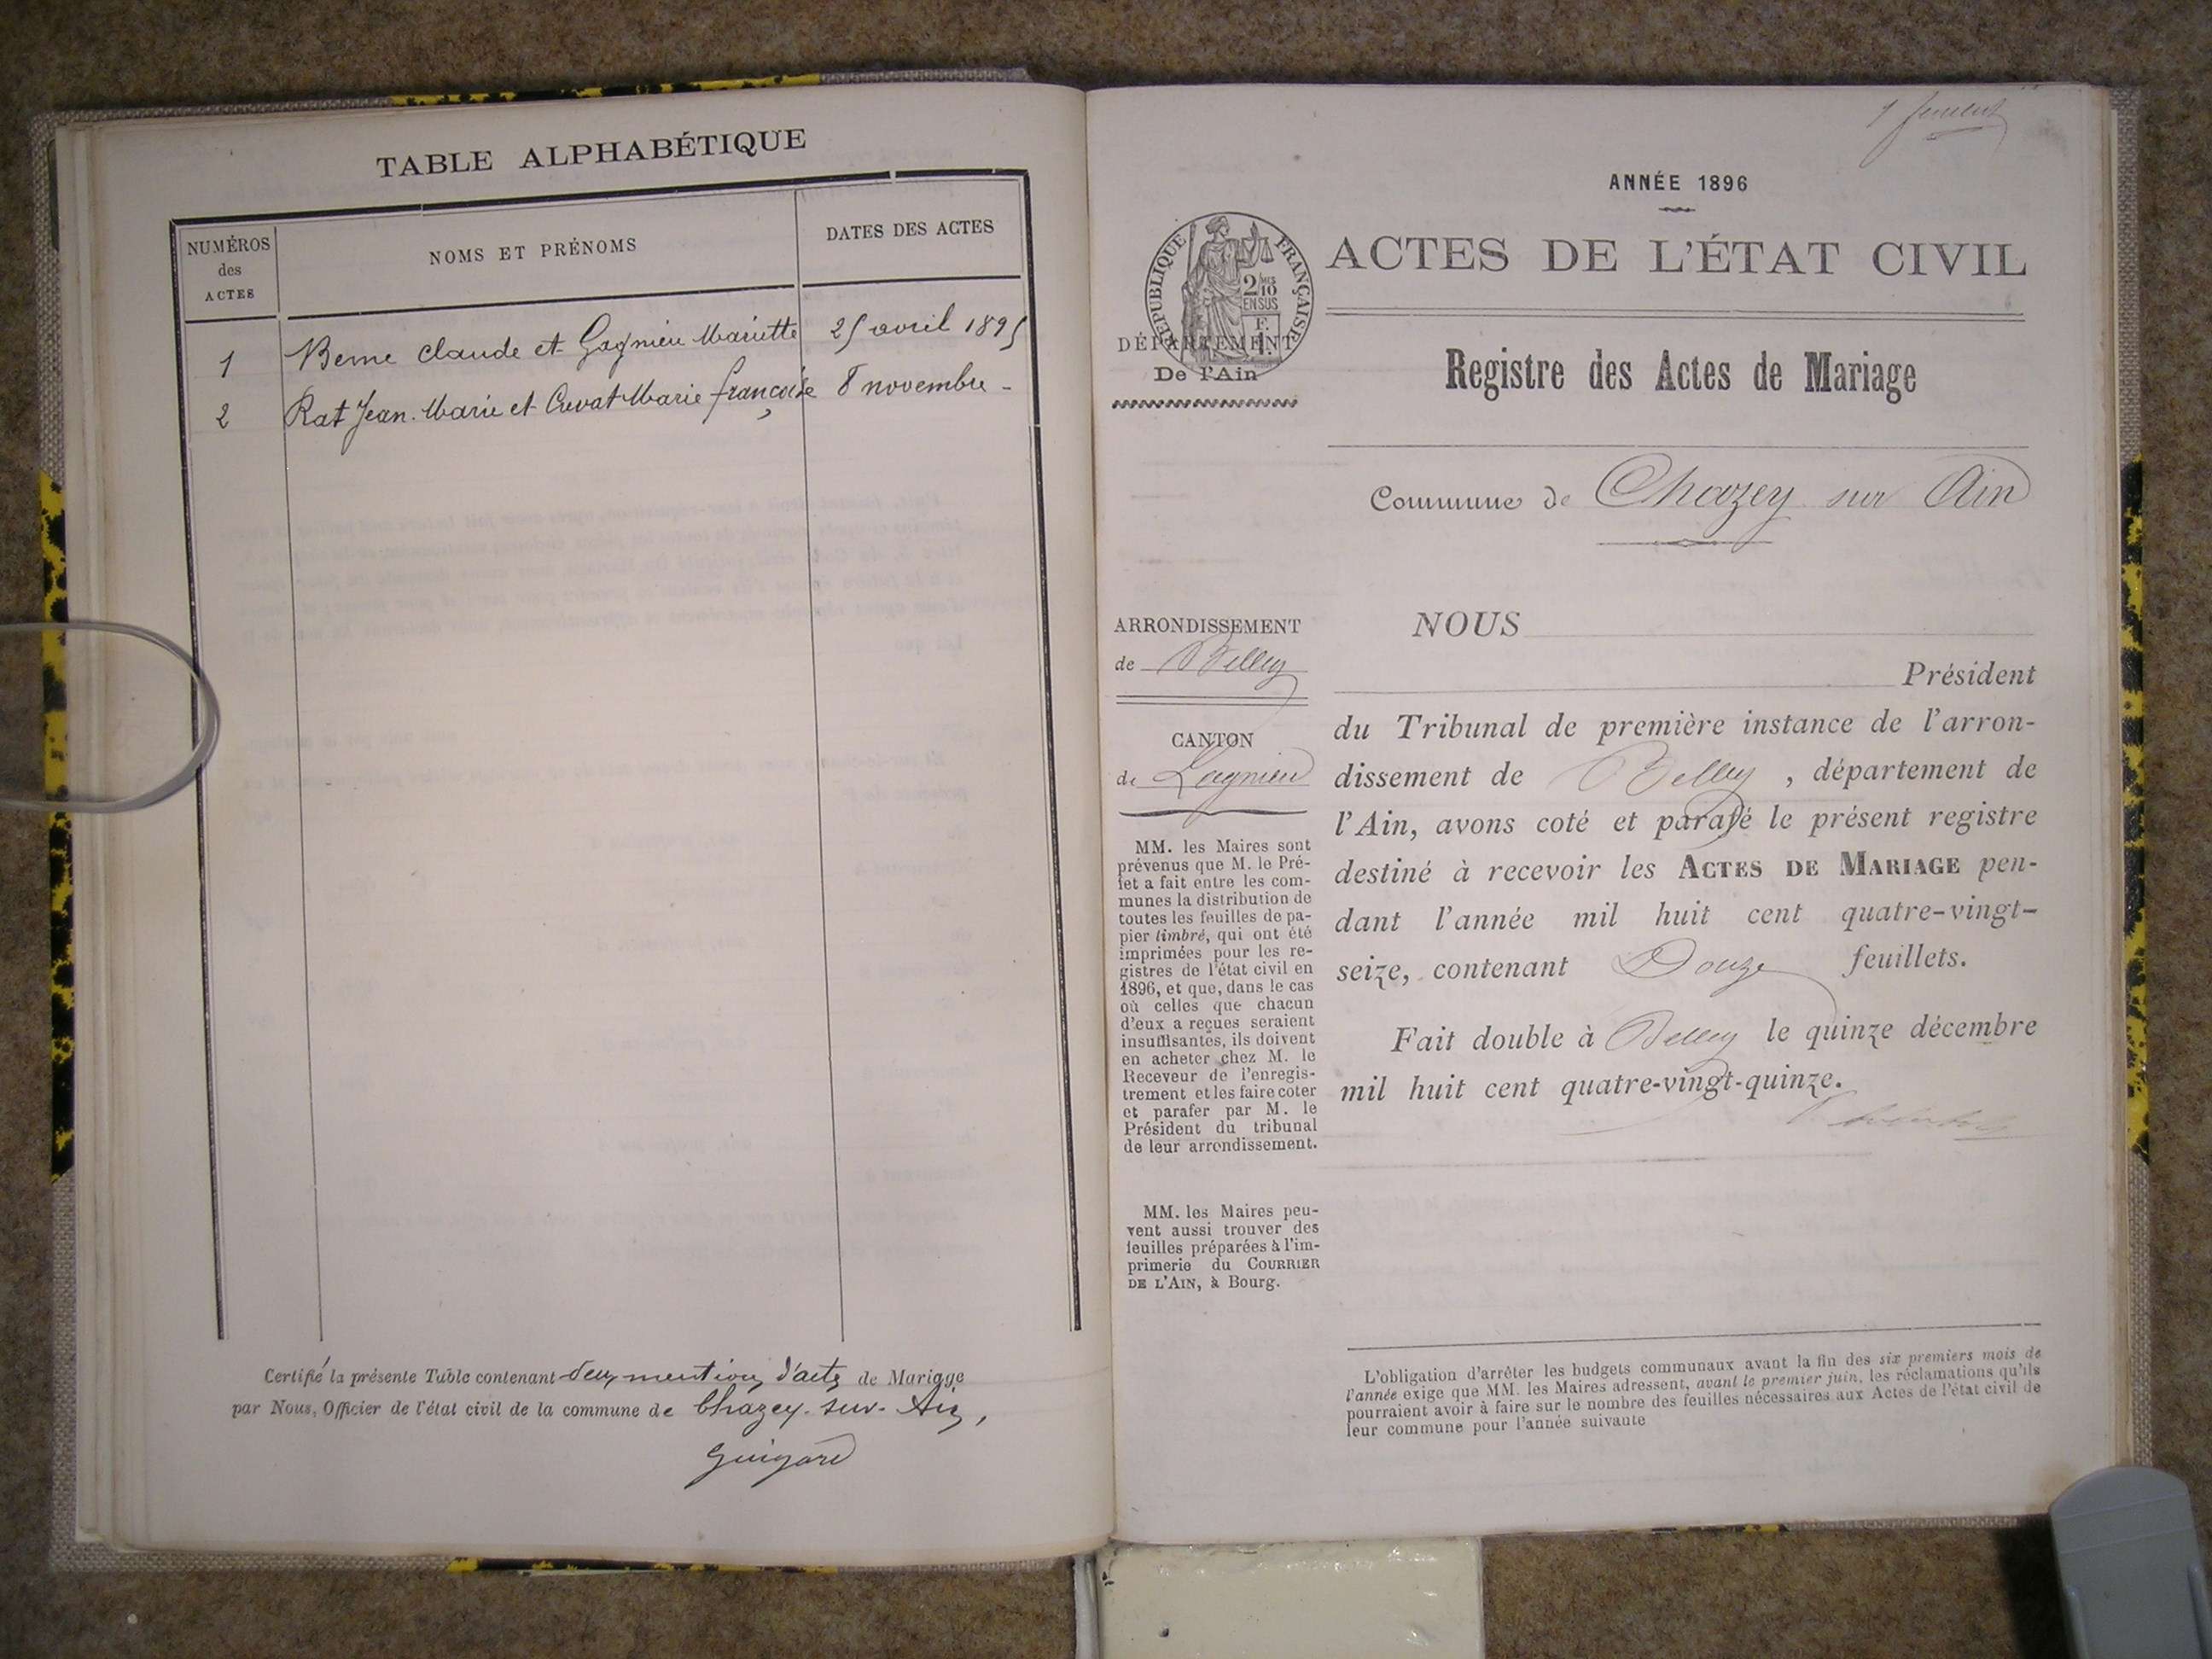 TABLE ALPHABÉTIQUE
NUMÉROS
des
ACTES
NOMS ET PRÉNOMS
DATES DES ACTES
1 Berne Claude et Gagnieu Mariette 25 avril 1895
2 Rat Jean-Marie et Crevat Marie françoise 8 novembre -
Certifié la présente Table contenant deux mentions d'acte de Mariage
par Nous, Officier de l'état civil de la commune de Chazey-sur-Ain,
Guigard
ANNÉE 1896
RÉPUBLIQUE FRANÇAISE
2/10
EN SUS
F.
1.
DÉPARTEMENT
De l'Ain
ACTES DE L'ÉTAT CIVIL
Registre des Actes de Mariage
Commune de Chazey sur Ain
ARRONDISSEMENT
de Belley
CANTON
de Lagnieu
MM. les Maires sont
prévenus que M. le Pré-
fet a fait entre les com-
munes la distribution de
toutes les feuilles de pa-
pier timbré, qui ont été
imprimées pour les re-
gistres de l'état civil en
1896, et que, dans le cas
où celles que chacun
d'eux a reçues seraient
insuffisantes, ils doivent
en acheter chez M. le
Receveur de l'enregis-
trement et les faire coter
et parafer par M. le
Président du tribunal
de leur arrondissement.
MM. les Maires peu-
vent aussi trouver des
feuilles préparées à l'im-
primerie du COURRIER
DE L'AIN, à Bourg.
NOUS
Président
du Tribunal de première instance de l'arron-
dissement de Belley , département de
l'Ain, avons coté et parafé le présent registre
destiné à recevoir les ACTES DE MARIAGE pen-
dant l'année mil huit cent quatre-vingt-
seize, contenant Douze feuillets.
Fait double à Belley le quinze décembre
mil huit cent quatre-vingt-quinze.
L'obligation d'arrêter les budgets communaux avant la fin des six premiers mois de
l'année exige que MM. les Maires adressent, avant le premier juin, les réclamations qu'ils
pourraient avoir à faire sur le nombre des feuilles nécessaires aux Actes de l'état civil de
leur commune pour l'année suivante